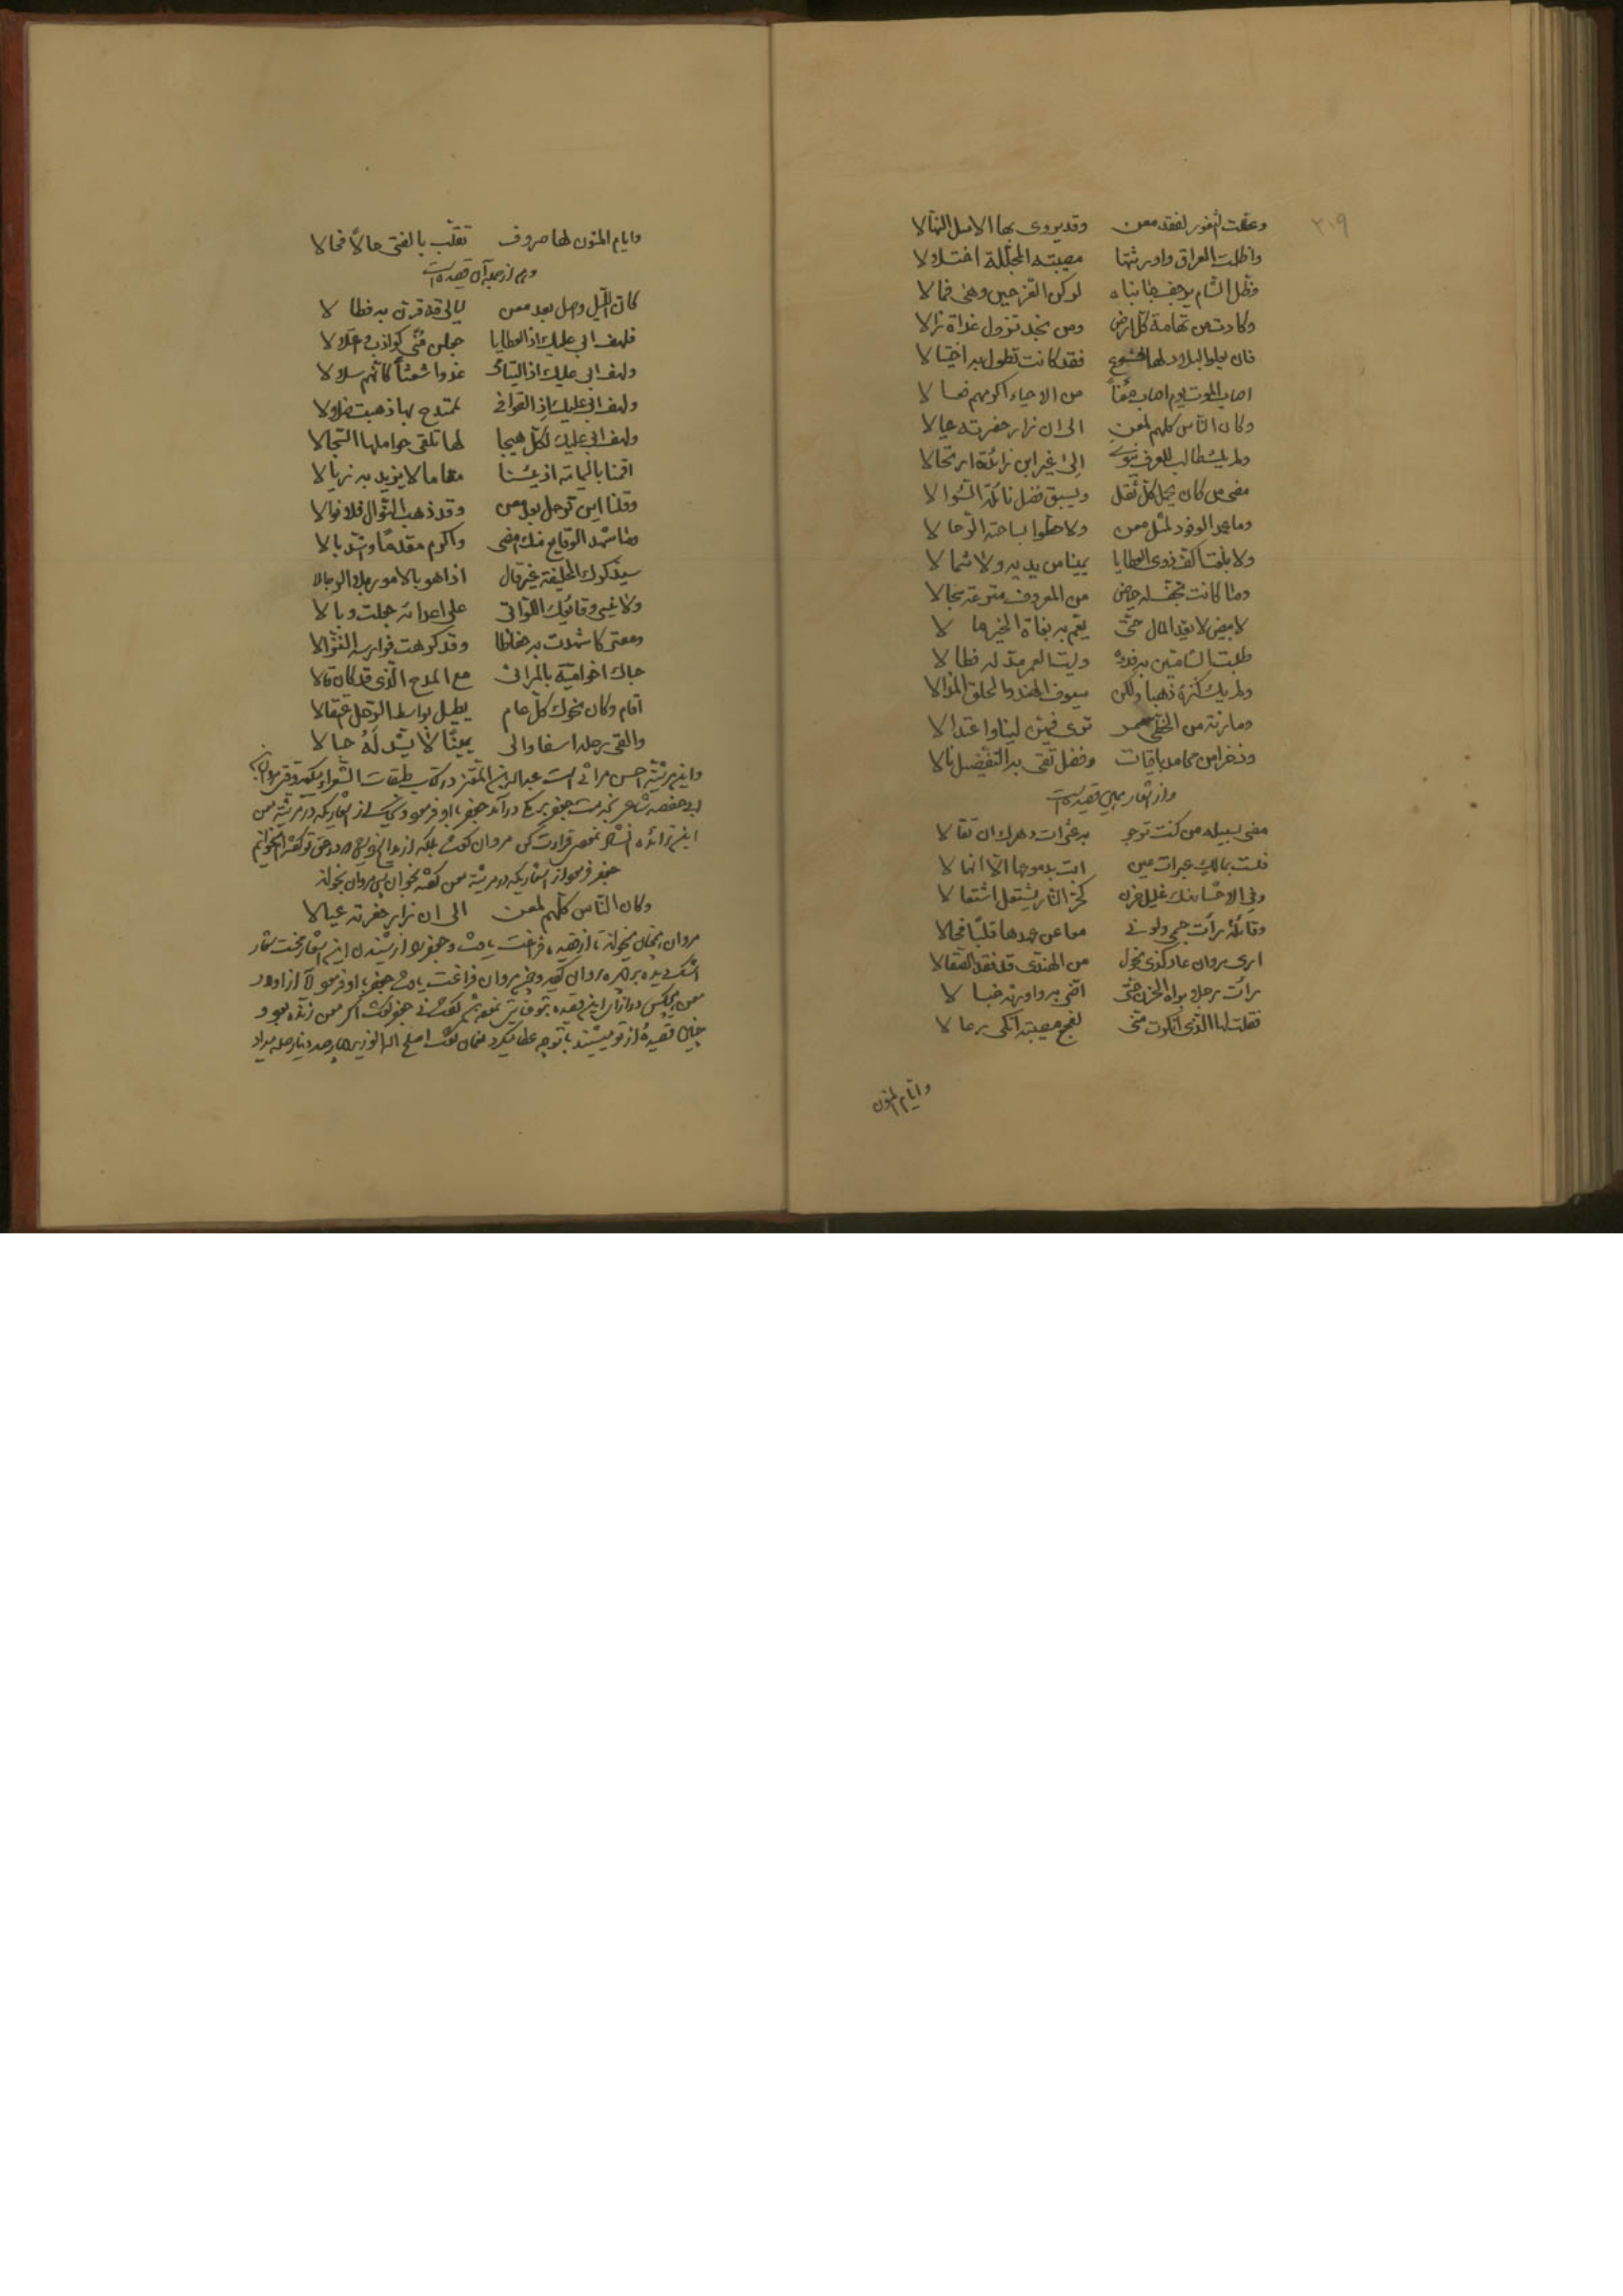 ٢٠٩
وعطلت الثغور لفقد معن وقد يروى بها الاسل النهالا
واظلمت العراق واورثتها مصيبته المجللة اختلالا
وظل الشام يرجف جانباه لركن العز حين وهى فمالا
وكادت من تهامة كل ارض ومن نجد تزول غداة زالا
فان يعلوا البلاد لها خشوع فقد كانت تطول به اختيالا
اصاب الموت يوم اصاب معنا من الاحياء اكرمهم فعالا
وكان الناس كلهم لمعن الى ان زار حفرته عيالا
ولم يك طالب للعرف ينوى الى غير ابن زائدة ارتحالا
مضى من كان يحمل كل ثقل ويسبق فضل نائله السؤالا
وما عمد الوفود لمثل معن ولا حطوا بساحته الرحالا
ولا بلغت اكف ذوى العطايا يمينا من يديه ولا شمالا
وما كانت تجف له حياض من المعروف مترعة سجالا
لابيض لا يعد المال حتى يعم به بغاة الخير مالا
فليت الشامتين به فدوه وليت العمر مد له فطالا
ولم يك كنزه ذهبا ولكن سيوف الهند والحلق المذالا
ومارنة من الخطى سمر ترى فيهن لينا واعتدالا
وذخرا من محامد باقيات وفضل تقى به التفضيل نالا
واز اشعار همين قصيده است
مضى لسبيله من كنت ترجو به عثرات دهرك ان تقالا
فلست بمالك عبرات عين ابت بدموعها الا انهمالا
وفى الاحشاء منك غليل حزن كحر النار يشتعل اشتعالا
وقائلة رات جسمى ولونى معا عن عهدها قلبا فحالا
ارى مروان عاد كذى نحول من الهندى قد فقد الصقالا
رات رجلا براه الحزن حتى اضر به واورثه خبالا
فقلت لها الذى انكرت منى لفجع مصيبة انكى وعالا
وايام المنون
وايام المنون لها صروف تقلب بالفتى حالا فحالا
وهم از جمله آن قصيده است
كان الليل واصل بعد معن ليالى قد قرن به فطالا
فلهف ابى عليك اذ العطايا جعلن منى كواذب واعتلالا
ولهف ابى عليك اذ اليتامى غدوا شعثا كانهم سلالا
ولهف ابى عليك اذ القوافى لممتدح بها ذهبت ضلالا
ولهف ابى عليك لكل هيجا لها تلقى حواملها السجالا
اقمنا باليمامة اذ يئسنا مقاما لا نريد به زيالا
وقلنا اين نرحل بعد معن وقد ذهب النوال فلا نوالا
وما شهد الوقايع منك امضى واكرم مقدما واشد بالا
سيذكرك الخليفة غير قال اذا هو بالامور بلا الرجالا
ولا ينسى وقائعك اللواتى على اعدائه جعلت وبالا
ومعترك شهدت به حفاظا وقد كرهت فوارسه النزالا
حباك اخو امية بالمراثى مع المدح الذى قد كان قالا
اقام وكان نحوك كل عام يطيل بواسط الرحل اعتقالا
والقى رحله اسفا والى يمينا لا يشد له حبالا
واين مرثيه احسن مراثى است عبدالله بن المعتز در كتاب طبقات الشعراء ميگويد وقتى مروان بن
ابى حفصه شاعر بخدمت جعفر برمكى در آمد جعفر باو فرمود از اشعاريكه در مرثيه معن
بن زائده مروان گفت بلكه از مدايح
جعفر فرمود از اشعاريكه در مرثيه معن گفته بخوان پس مروان بخواند
وكان الناس كلهم لمعن الى ان زار حفرته عيالا
مروان همچنان ميخواند تا از قصيده فراغت يافت و جعفر را از شنيدن اين اشعار
اشك ديده بر چهره روان گرديد و چون مروان فراغت يافت جعفر باو فرمود آيا از اولاد
معن هيچكس در ازاى اين قصيده گفت نى جعفر گفت اگر معن زنده بود و
چنين قصيدۀ از تو ميشنيد بتو چه عطا ميكرد گفت اصلح الله الوزير چهار صد دينار صله ميداد